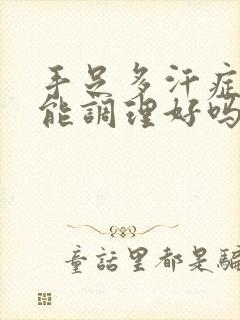 手足多汗症
能調理好吗
童話里都是騙